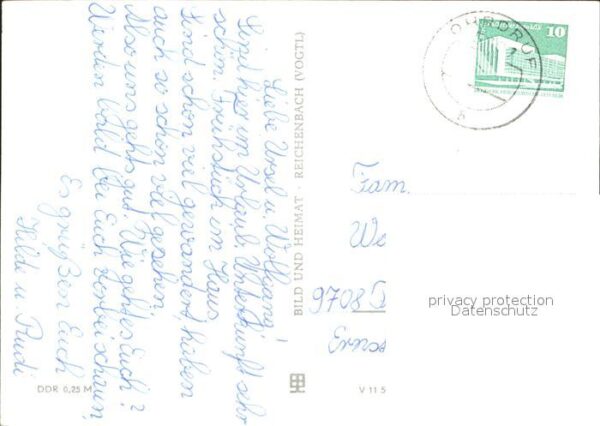 Liebe Ursel u. Wolfgang!
Sind hier im Urlaub. Unterkunft sehr
schön. Frühstück im Haus.
Sind schon viel gewandert, haben
auch so schon viel gesehen.
Also uns gehts gut. Wie geht es Euch?
Werden bald bei Euch vorbeischaun,
Es grüßen Euch
Hilde u. Rudi
BILD UND HEIMAT · REICHENBACH (VOGTL)
DDR 0,25 M
V 11 5
OHRDRUF
10
Fam.
We
9708
Ernst
privacy protection
Datenschutz